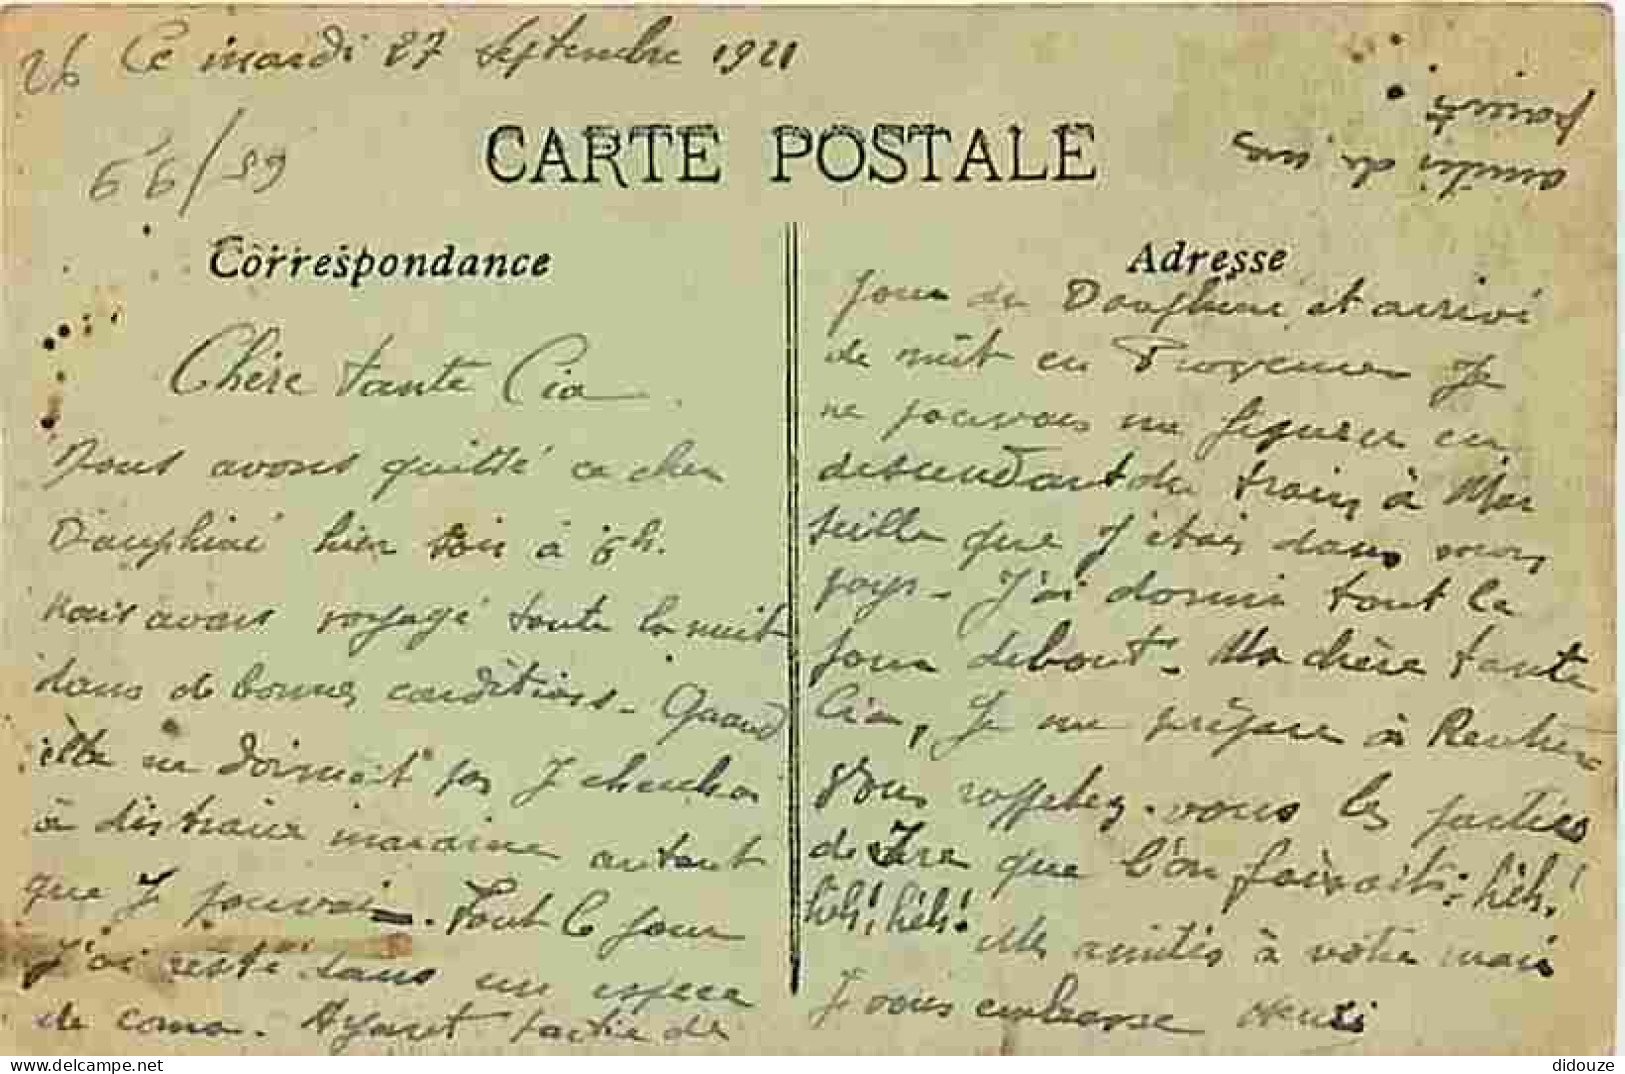 26 Ce mardi 27 Septembre 1921
66/99
CARTE POSTALE
amitiés de mes
Correspondance
Adresse
Chère tante Cia
Nous avons quitté ce cher
Dauphiné hier soir à 6h.
nous avons voyagé toute la nuit
dans de bonnes conditions. Quand
elle ne dormait pas je cherchai
à distraire marraine autant
que je pouvai. Tout le jour
j'ai resté dans un espece
de coma. Ayant partie de
jour du Dauphiné et arrivé
de nuit en Provence je
ne pouvais me figurer en
descendant du train à Mar
seille que j'étais dans mon
pays. J'ai dormi tout le
jour debout. Ma chère tante
Cia, je me prépare à Rentrer
Vous rappelez-vous les parties
de que l'on faisait: hèh!
hèh! hèh! Mes amitiés à votre mari
Je vous embrasse Henri
didouze